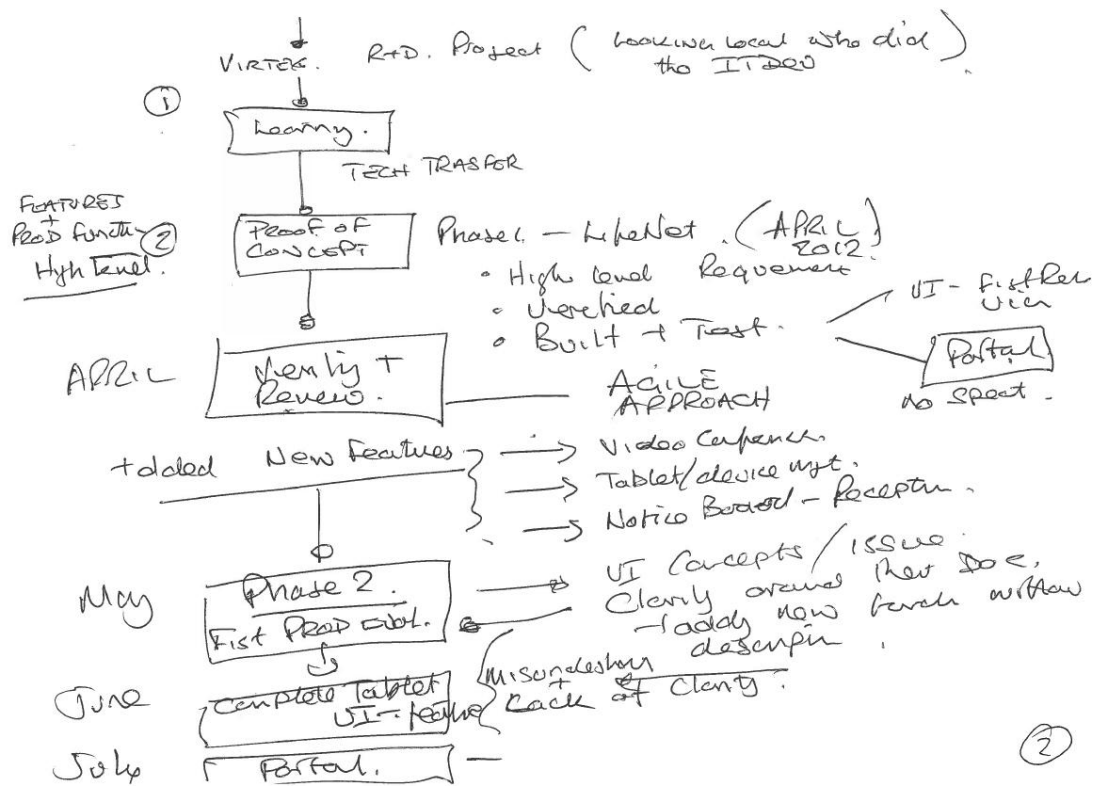 VIRTEK. R+D. Project (Looking Local who did
the ITDEV).
1
Learning.
TECH TRASFER
FEATURES
+
PROD Functi
High level.
2
PROOF OF
CONCEPT
Phase 1 - LifeNet. (APRIL
2012)
• High level Requement
• Verefied
• Built + Test.
UI - First Rev
View
Portal
No Spect.
APRIL
Verify +
Review.
AGILE
APPROACH
+ added New Features
Video Conference.
Tablet/device mgt.
Notice Board - Reception.
May
Phase 2.
First PROD
UI Concepts / ISSUE.
Clarity around their DOC.
+ adding new
description.
Misundestanding
+
Lack of Clarity.
June
Complete Tablet
UI - feature
July
Portal.
2